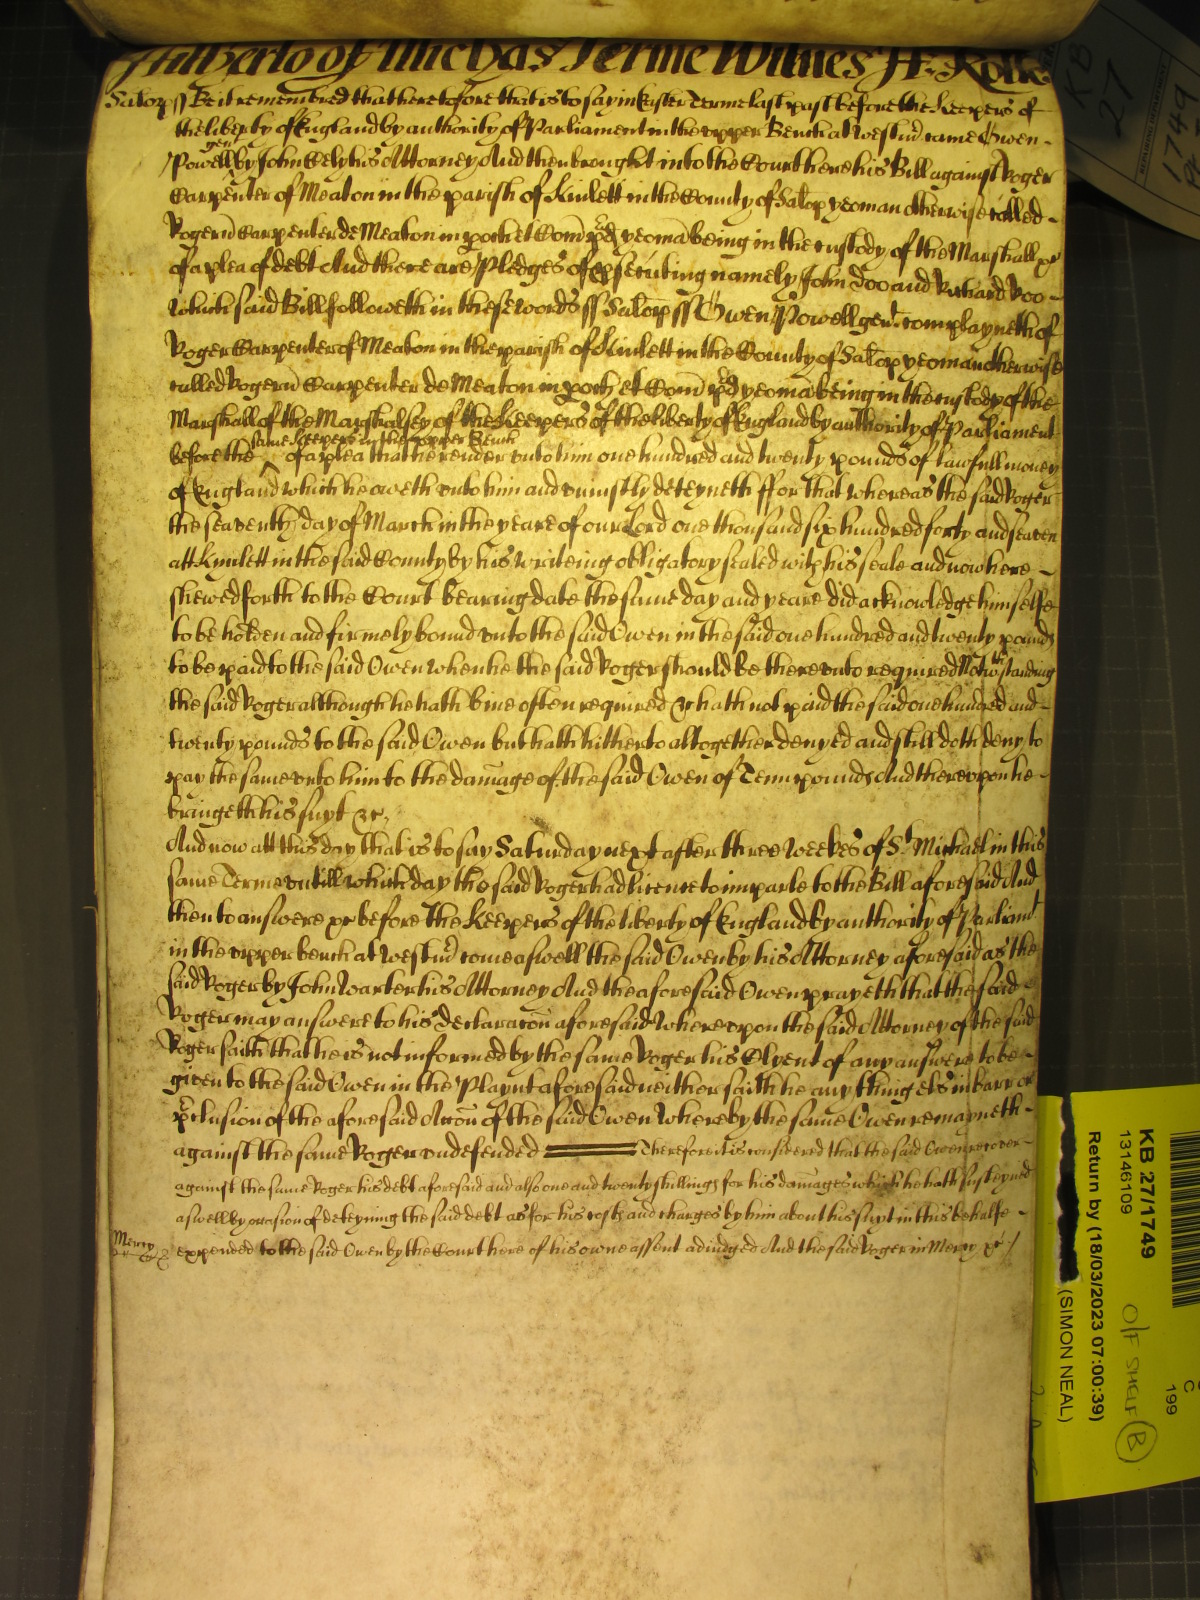 Hitherto of Michas Terme Witnes H. Rolle
Salop ss Be it remembred that heretofore that is to say in Easter Terme last past before the Keepers of
the liberty of England by authority of Parliament in the upper Bench at Westm̃ came Owen
gen
Powell by John Cely his Attorney And then brought into the Court here his Bill against Roger
Carpenter of Meaton in the parish of Kinlett in the County of Salop yeoman otherwise called
Rogerũ Carpenter de Meaton in poch et Com̃ p̃d yeomã being in the custody of the Marshall &c
of a plea of debt And there are Pledges of p̃secuting namely John Doo and Richard Roo
Which said Bill followeth in these words ss Salop ss Owen Powell gen̄ complayneth of
Roger Carpenter of Meaton in the parish of Kinlett in the County of Salop yeoman otherwise
called Rogerũ Carpenter de Meaton in poch et Com̃ p̃d yeomã being in the custody of the
Marshall of the Marshalsey of the Keepers of the liberty of England by authority of Parliament
same Keepers in the upper Bench
before the ^ of a plea that he render unto him one hundred and twenty pounds of lawfull money
of England which he oweth unto him and uniustly deteyneth ffor that whereas the said Roger
the seaventh day of March in the yeare of our Lord one thousand six hundred forty and seaven
att Kinlett in the said County by his writeing obligatory sealed with his seale and now here
shewed forth to the Court bearing date the same day and yeare did acknowledge himselfe
to be holden and firmely bound unto the said Owen in the said one hundred and twenty pounds
to be paid to the said Owen when he the said Roger should be thereunto required Notwthstanding
the said Roger although he hath bine often required &c hath not paid the said one hundred and
twenty pounds to the said Owen but hath hitherto altogether denyed and still doth deny to
pay the same unto him to the dam̃age of the said Owen of Tenn pounds And thereupon he
bringeth his suyt &c.
And now att this day that is to say Saturday next after three Weekes of St Michael in this
same Terme untill which day the said Roger had licence to imparle to the Bill aforesaid And
then to answere &c before the Keepers of the liberty of England by authority of Parliamt
in the upper bench at Westm̃ come aswell the said Owen by his Attorney aforesaid as the
said Roger by John Warter his Attorney And the aforesaid Owen prayeth that the said
Roger may answere to his declaracoñ aforesaid Whereupon the said Attorney of the said
Roger saith that he is not informed by the same Roger his Clyent of any answere to be
given to the said Owen in the Playnt aforesaid neither saith he any thing els in barr or
p̃clusion of the aforesaid Accoñ of the said Owen Whereby the same Owen remayneth
against the same Roger undefended Therefore it is considered that the said Owen recover
against the same Roger his debt aforesaid and also one and twenty shillings for his dam̃ages which he hath susteyned
aswell by occasion of deteyning the said debt as for his costs and charges by him about his suyt in this behalfe
Mercy expended to the said Owen by the Court here of his owne assent adiudged And the said Roger in Mercy &c /
KB
27
1749
REPAIRING DEPARTMENT
KB 27/1749
13146109
Return by (18/03/2023 07:00:39)
(SIMON NEAL)
O/F SHELF B
C
199